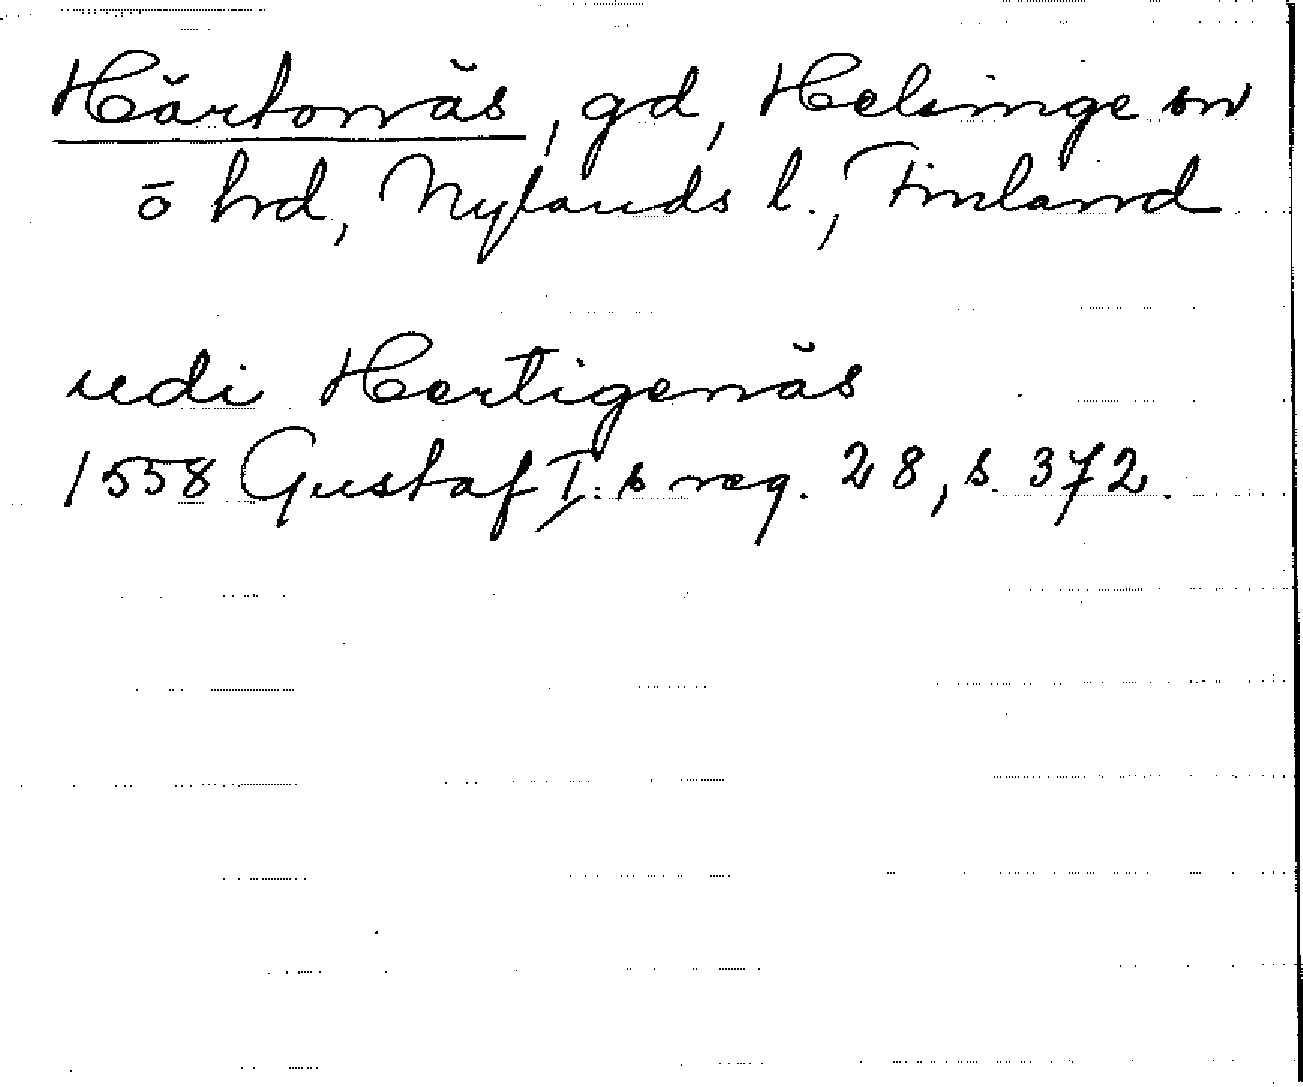 Hårtonäs, gd, Helsinge sn
ö hrd, Nylands l., Finland
udi Hertigenäs
1558 Gustaf I:s reg. 28, s. 372.